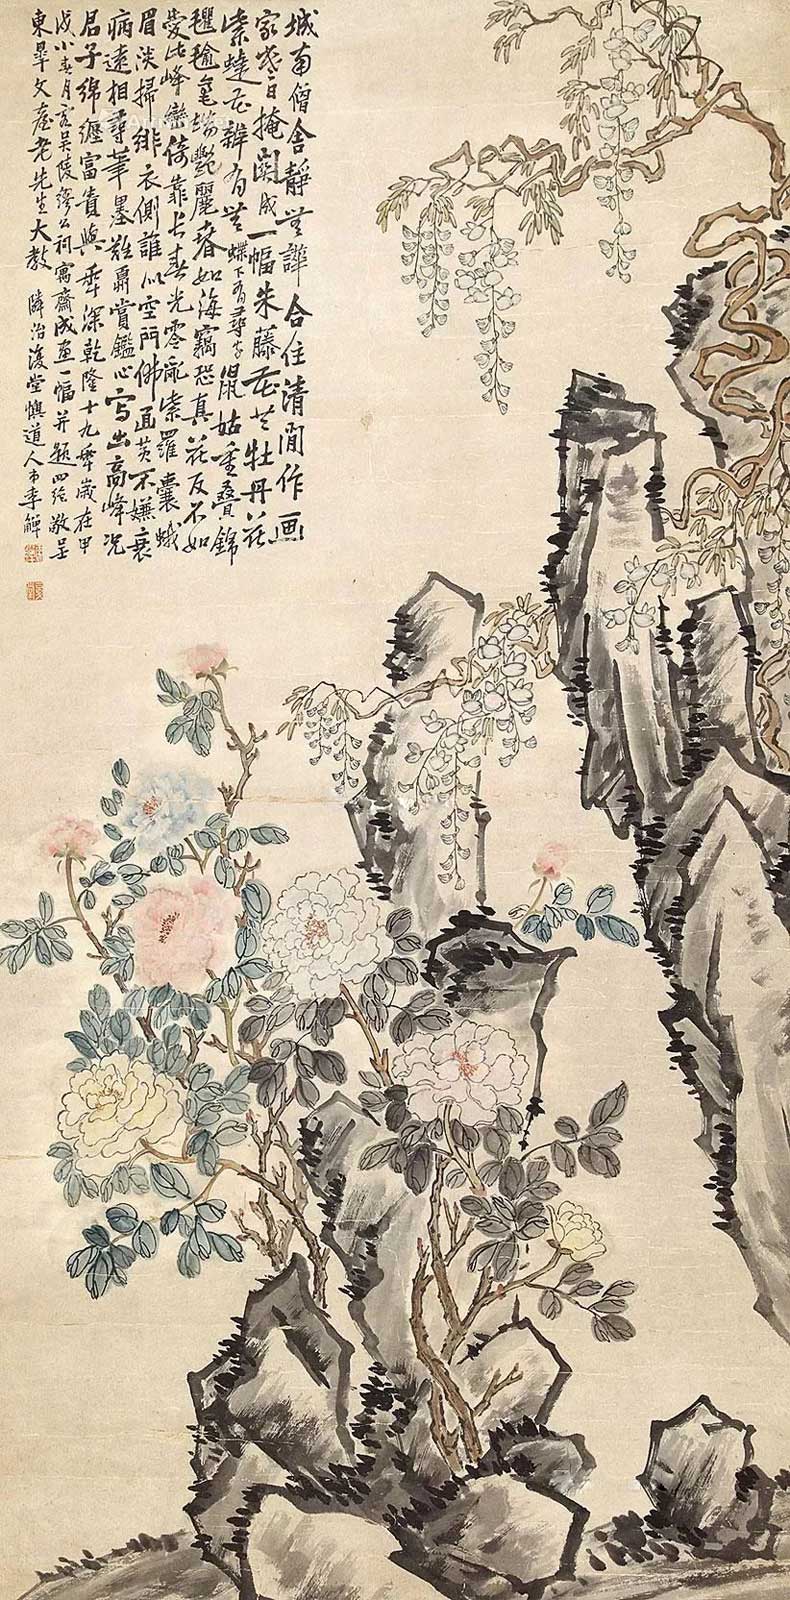 城南僧舍靜無譁合住清閒作画
家盡日掩關成一幅朱藤花共牡丹花
紫蝶花辦有無蝶下有尋字鼠姑重疊錦
氍毹毫端艷麗春如海竊恐真花反不如
愛此峰巒倚靠長春光零亂紫羅囊蛾
眉淡掃緋衣側誰似空門佛面黃不嫌衰
病遠相尋筆墨難爲賞鑑心寫出高峰況
君子綿纏富貴與年深乾隆十九年歲在甲
戌小春月客吴陵繆公祠寓齋成画一幅并題四絶敬呈
東皋文老先生大教 隣治復堂懊道人弟李鱓